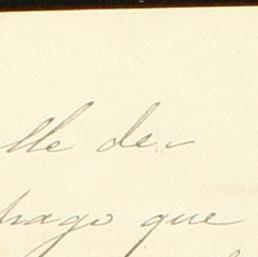 lle de
hago que